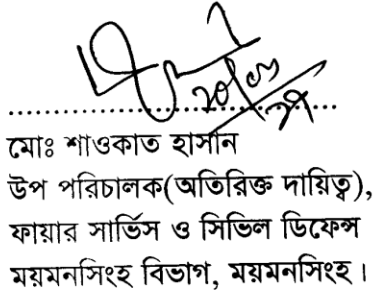 মোঃ শাওকাত হাসান
উপ পরিচালক(অতিরিক্ত দায়িত্ব),
ফায়ার সার্ভিস ও সিভিল ডিফেন্স
ময়মনসিংহ বিভাগ, ময়মনসিংহ।